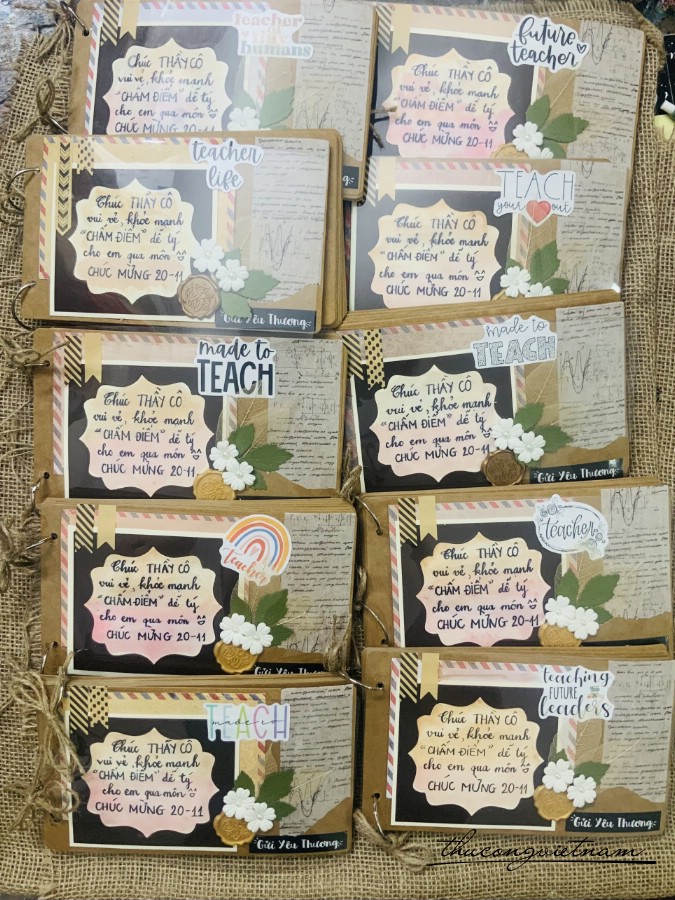 teacher
of tiny
humans
Chúc THẦY CÔ
vui vẻ, khỏe mạnh
"CHẤM ĐIỂM" dễ tý
cho em qua môn
CHÚC MỪNG 20-11
future
teacher
Chúc THẦY CÔ
vui vẻ, khỏe mạnh
"CHẤM ĐIỂM" dễ tý
cho em qua môn
CHÚC MỪNG 20-11
teacher
life
Chúc THẦY CÔ
vui vẻ, khỏe mạnh
"CHẤM ĐIỂM" dễ tý
cho em qua môn
CHÚC MỪNG 20-11
Gửi Yêu Thương
TEACH
your out
Chúc THẦY CÔ
vui vẻ, khỏe mạnh
"CHẤM ĐIỂM" dễ tý
cho em qua môn
CHÚC MỪNG 20-11
made to
TEACH
Chúc THẦY CÔ
vui vẻ, khỏe mạnh
"CHẤM ĐIỂM" dễ tý
cho em qua môn
CHÚC MỪNG 20-11
made to
TEACH
Chúc THẦY CÔ
vui vẻ, khỏe mạnh
"CHẤM ĐIỂM" dễ tý
cho em qua môn
CHÚC MỪNG 20-11
Gửi Yêu Thương
teacher
Chúc THẦY CÔ
vui vẻ, khỏe mạnh
"CHẤM ĐIỂM" dễ tý
cho em qua môn
CHÚC MỪNG 20-11
Gửi Yêu Thương
teacher
Chúc THẦY CÔ
vui vẻ, khỏe mạnh
"CHẤM ĐIỂM" dễ tý
cho em qua môn
CHÚC MỪNG 20-11
made to
TEACH
Chúc THẦY CÔ
vui vẻ, khỏe mạnh
"CHẤM ĐIỂM" dễ tý
cho em qua môn
CHÚC MỪNG 20-11
Gửi Yêu Thương
teaching
FUTURE
leaders
Chúc THẦY CÔ
vui vẻ, khỏe mạnh
"CHẤM ĐIỂM" dễ tý
cho em qua môn
CHÚC MỪNG 20-11
Gửi Yêu Thương
thucongvietnam